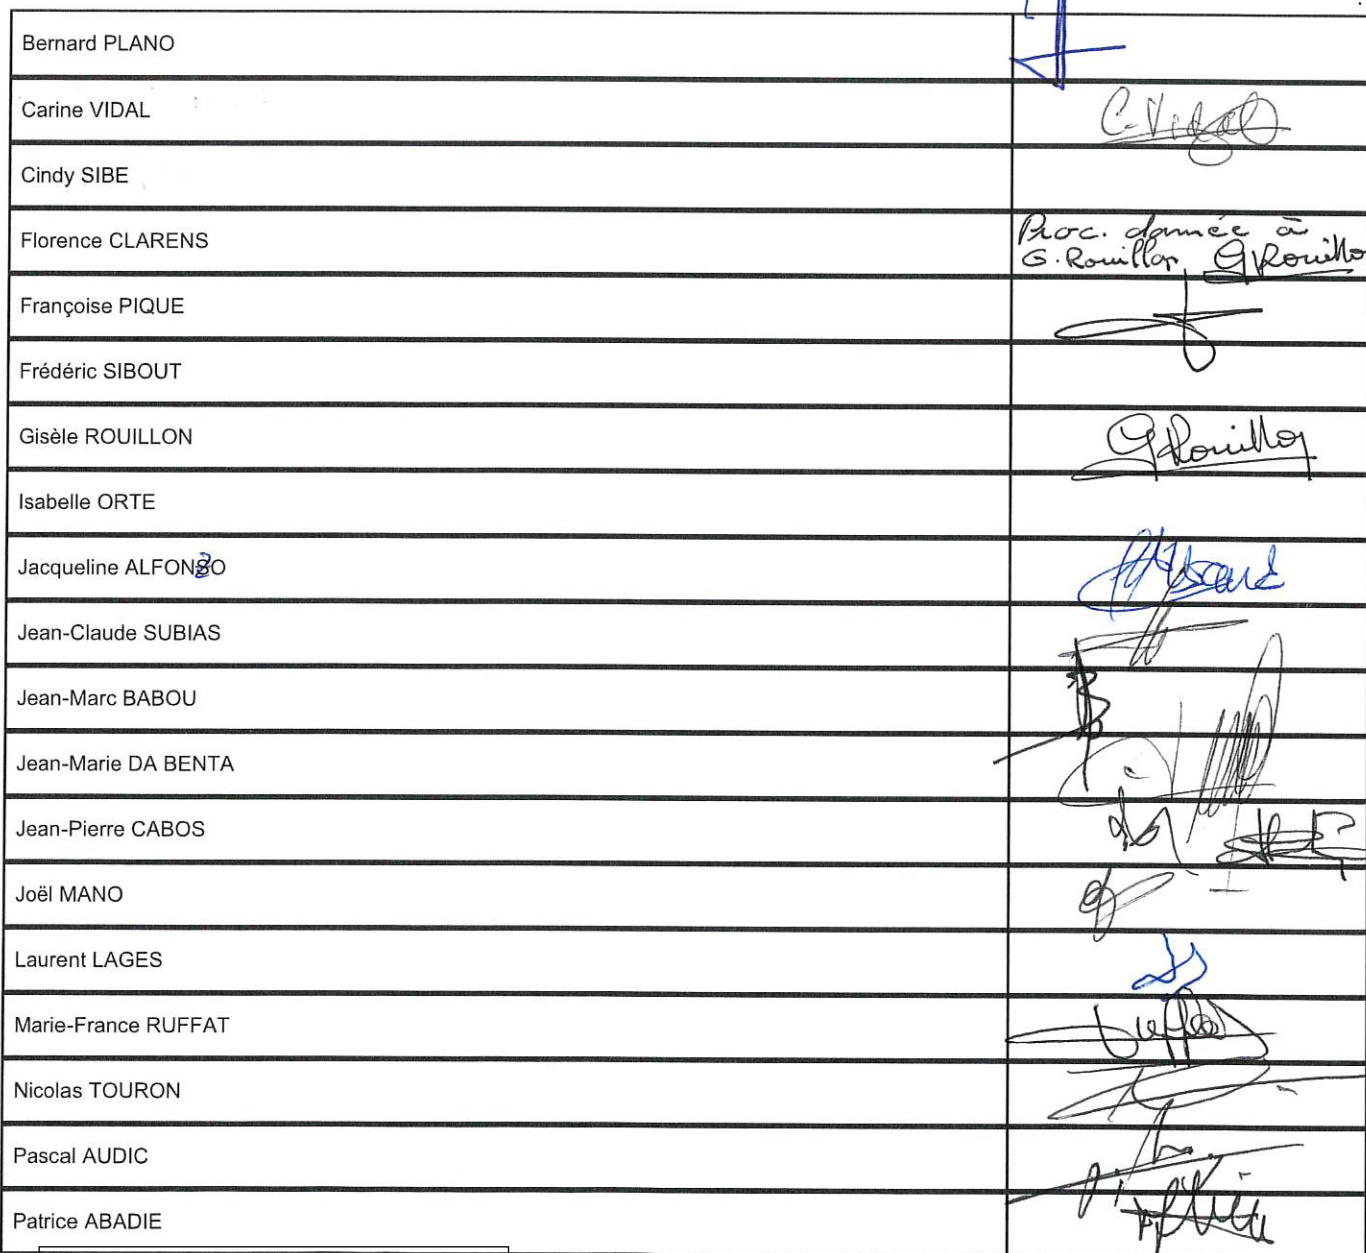 Bernard PLANO
Carine VIDAL
C. Vidal
Cindy SIBE
Florence CLARENS
Proc. donnée à
G. Rouillon GRouillo
Françoise PIQUE
Frédéric SIBOUT
Gisèle ROUILLON
GRouillon
Isabelle ORTE
Jacqueline ALFONZO
Jean-Claude SUBIAS
Jean-Marc BABOU
Jean-Marie DA BENTA
Jean-Pierre CABOS
Joël MANO
Laurent LAGES
Marie-France RUFFAT
Nicolas TOURON
Pascal AUDIC
Patrice ABADIE